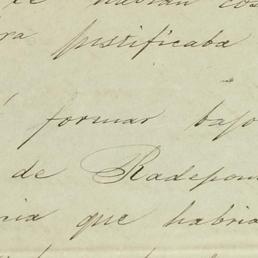 de habian co
ra justificaba
formar bajo
de Radepon
ria que habria